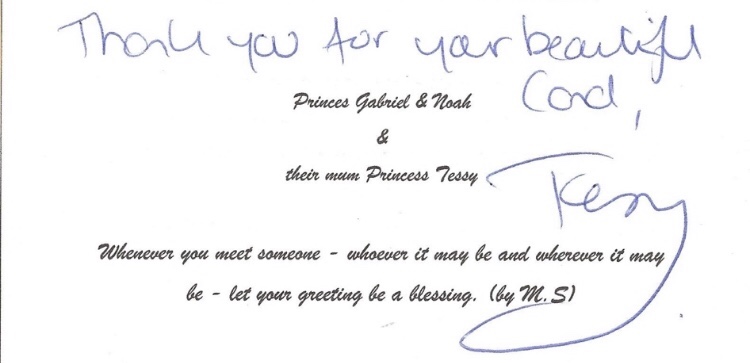 Thank you for your beautiful
Card,
Princes Gabriel & Noah
&
their mum Princess Tessy
Tessy
Whenever you meet someone - whoever it may be and wherever it may
be - let your greeting be a blessing. (by M.S)